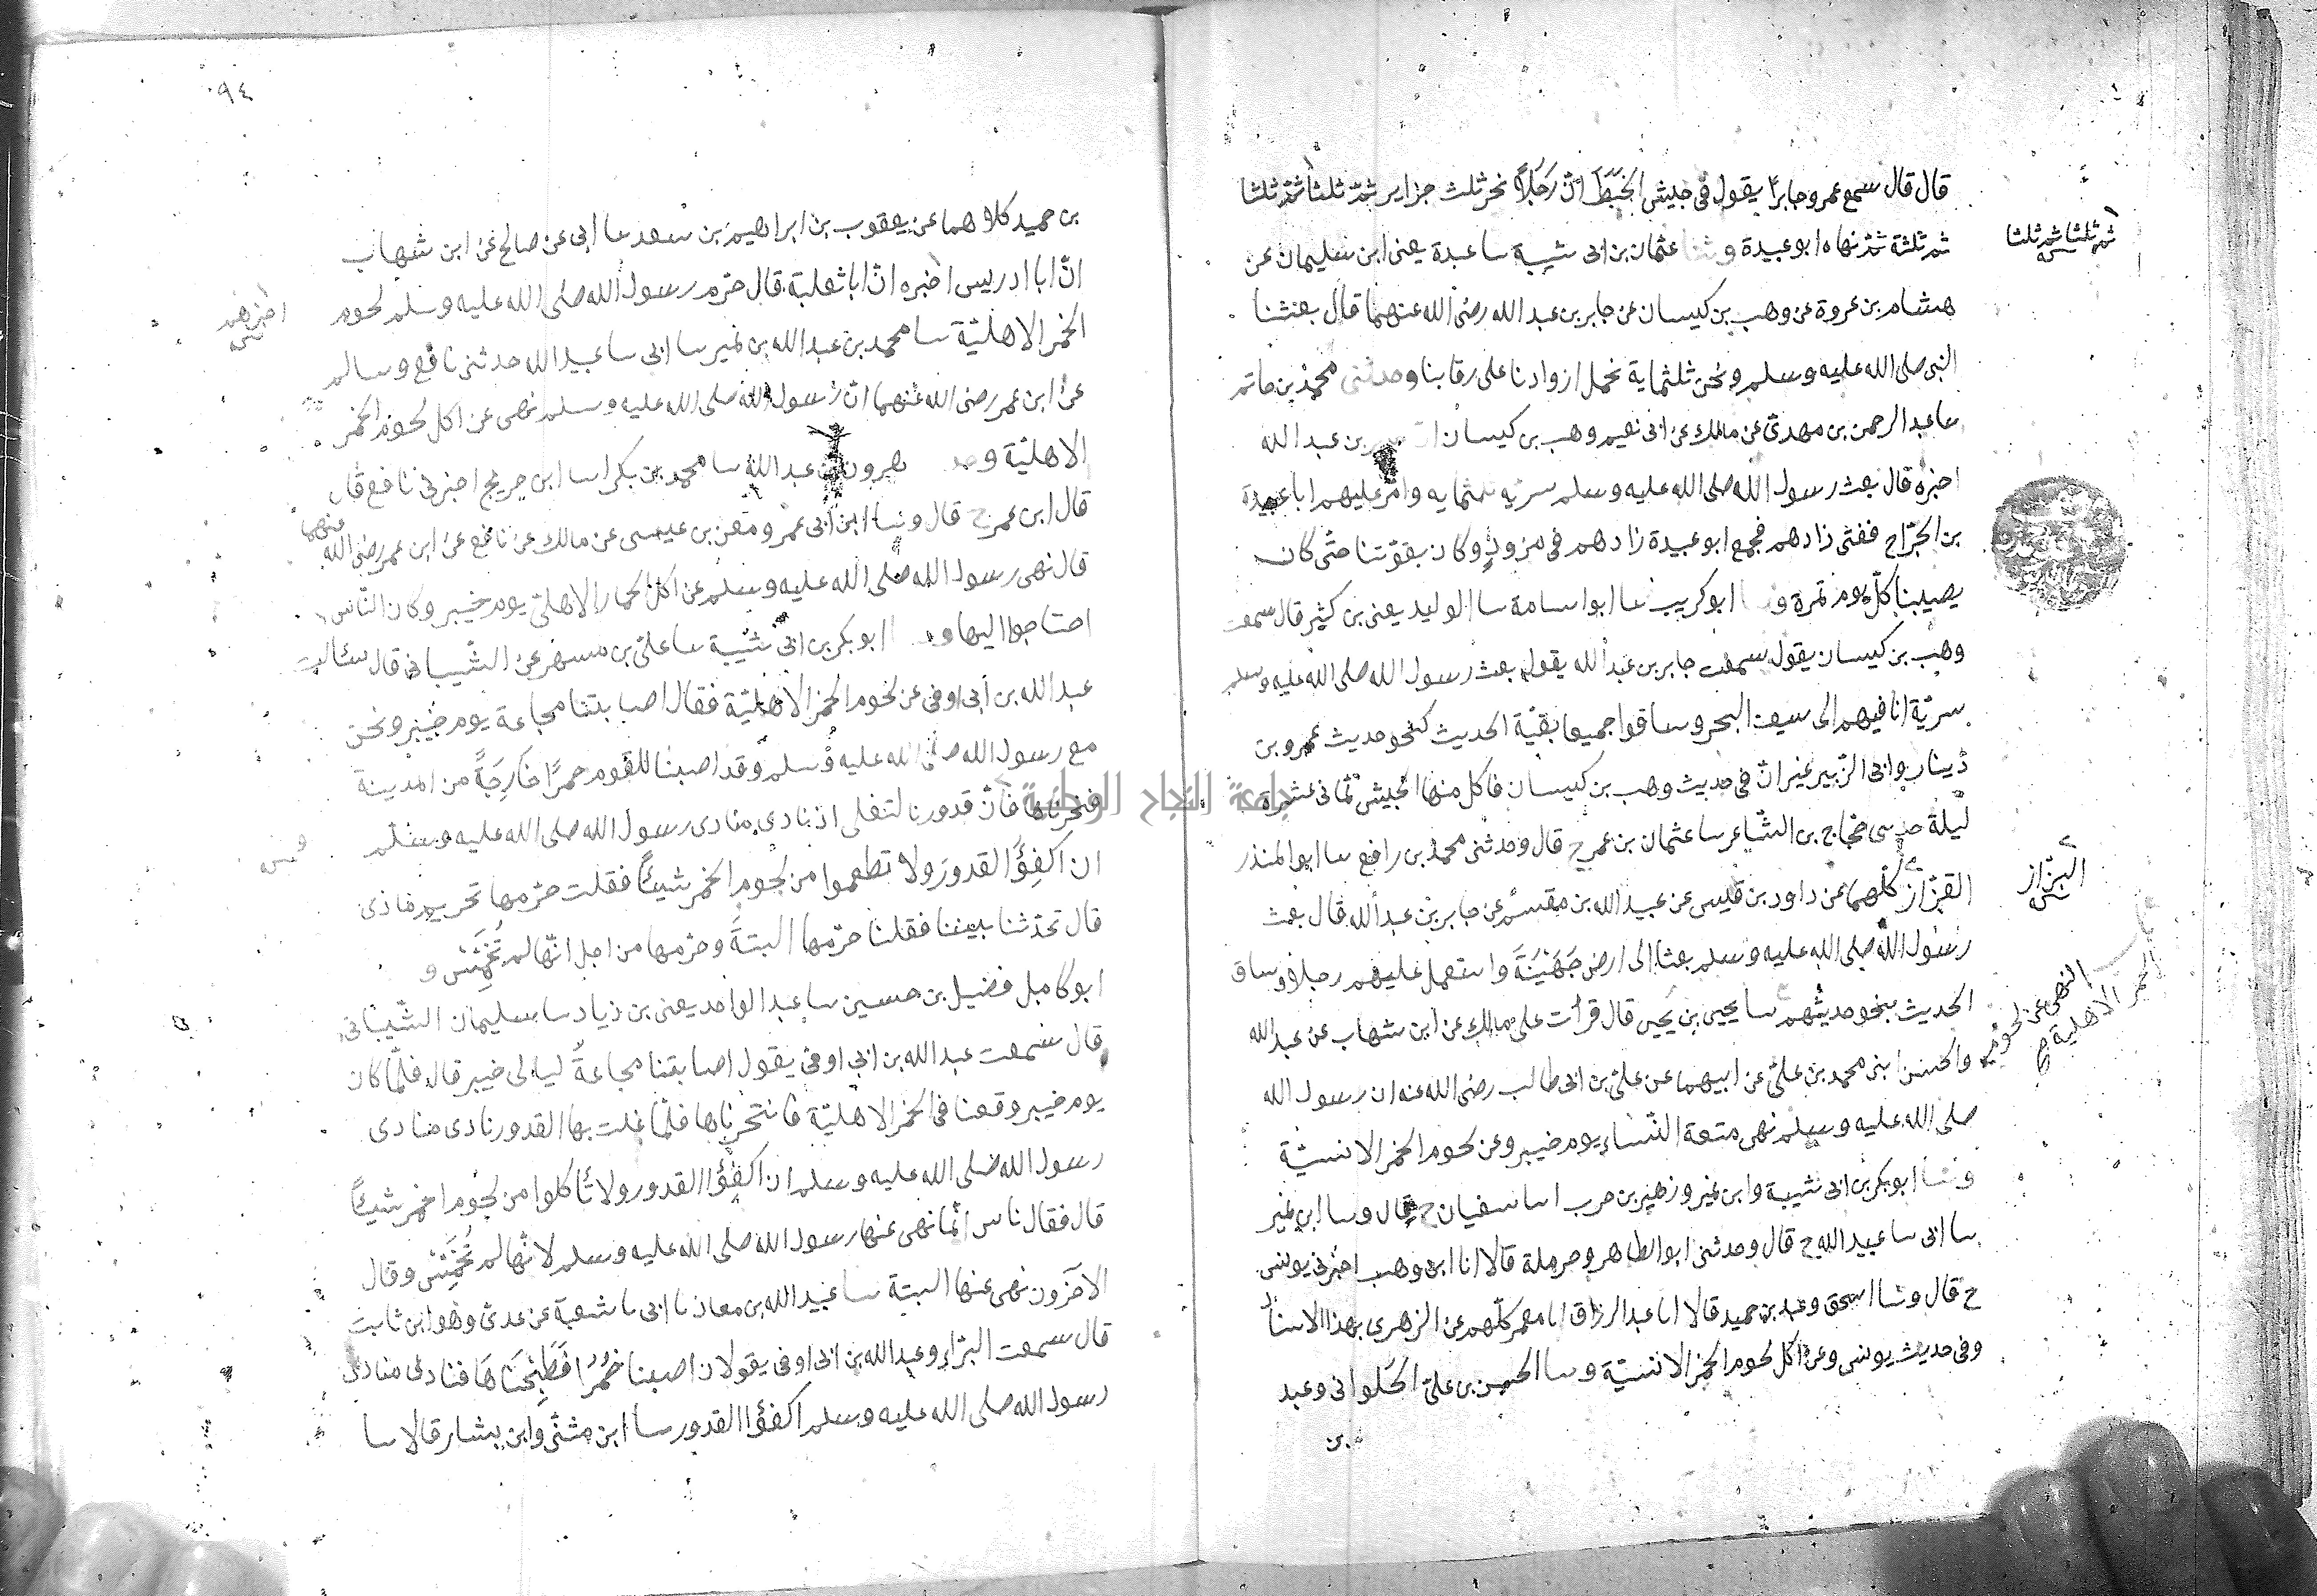 قال قال سمع عمرو جابرًا يقول في جيش الخَبَط انّ رَجُلاً نحر ثلث جزاير ثمّ ثلثا ثمّ ثلثا
ثم ثلثا ثم ثلثا
ثم ثلثة ثمّ نهاه ابو عبيدة وثنا عثمان بن ابي شيبة سا عبدة يعني ابن سليمان عن
هشام بن عروة عن وهب بن كيسان عن جابر بن عبد الله رضي الله عنهما قال بعثنا
النبي صلى الله عليه وسلم ونحن ثلثماية نحمل ازوادنا على رقابنا وحدثني محمد بن حاتم
سا عبد الرحمن بن مهدي عن مالك عن ابي نعيم وهب بن كيسان بن عبد الله
اخبره قال بعث رسول الله صلى الله عليه وسلم سريّه ثلثمايه وامّر عليهم ابا عبيدة
بن الجرّاح ففنى زادهم فجمع ابو عبيدة زادهم في مزود وكان يقوّتنا حتّى كان
يصيبنا كلّ يوم تمرة ابو كريب سا ابو اسامة سا الوليد يعني بن كثير قال سمعت
وهب بن كيسان يقول سمعت جابر بن عبد الله يقول بعث رسول الله صلى الله عليه وسلم
سريّة انا فيهم الى سيف البحر وساقوا جميعا بقيّة الحديث كنحو حديث عمرو بن
دينار وابي الزّبير غير انّ في حديث وهب بن كيسان فاكل منها الجيش ثماني عشرة
ليلة حدسى حجاج بن الشّاعر سا عثمان بن عمر ح قال وحدثني محمد بن رافع سا ابو المنذر
البزاز
القزّاز كلهما عن داود بن قيس عن عبيد الله بن مقسم عن جابر بن عبد الله قال بعث
رسول الله صلى الله عليه وسلم بعثا الى ارض جَهَيْنَةَ واستعمل عليهم رجلا وساق
النهى عن لحوم
الحمر الاهلية
الحديث بنحو حديثهم سا يحيى بن يحيى قال قرأت على مالك عن ابن شهاب عن عبد الله
والحسن ابنى محمد بن عليّ عن ابيهما عن عليّ بن ابي طالب رضي الله عنه ان رسول الله
صلى الله عليه وسلم نهى متعة النّساء يوم خيبر وعن لحوم الحمر الانسيّة
وثنا ابو بكر بن ابي شيبة وابن نمير وزهير بن حرب اسا سفيان ح قال وسا ابن نمير
سا ابي سا عبيد الله ح قال وحدثني ابو الطاهر وحرملة قالا انا ابن وهب اخبرني يونس
ح قال وسا اسحق وعبد بن حميد قالا انا عبد الرزاق انا معمر كلّهم عن الزهري بهذا الاسناد
وفي حديث يونس وعن اكل لحوم الحمر الانسيّة وسا الحسن بن عليّ الحلواني وعبد
بن
٩٤
بن حميد كلاهما عن يعقوب بن ابراهيم بن سعد سا ابي عن صالح عن ابن شهاب
انّ ابا ادريس اخبره انّ ابا ثعلبة قال حرّم رسول الله صلى الله عليه وسلم لحوم
اخبرهم
الحمر الاهليّة سا محمد بن عبد الله بن نمير سا ابي سا عبيد الله حدثني نافع وسالم
عن ابن عمر رضي الله عنهما انّ رسول الله صلى الله عليه وسلم نهى عن اكل لحوم الحمر
الاهليّة هرون بن عبد الله سا محمد بن بكر اسا ابن جريج اخبرني نافع قال
قال ابن عمر ح قال وسا ابن ابي عمر ومعن بن عيسى عن مالك عن نافع عن ابن عمر رضي الله
عنهما
قال نهى رسول الله صلى الله عليه وسلم عن اكل الحمار الاهلي يوم خيبر وكان النّاس
احتاجوا اليها ابو بكر بن ابي شيبة سا عليّ بن مسهر عن الشّيباني قال سئالت
عبد الله بن أبي اوفى عن لحوم الحمر الاهليّة فقال اصابتنا مجاعة يوم خيبر ونحن
مع رسول الله صلى الله عليه وسلم وقد اصبنا للقوم حمرًا خارِجَةً من المدينة
فنحرناها فانّ قدورنا لتغلى اذ نادى منادى رسول الله صلى الله عليه وسلّم
ان اكفِؤُ القدورَ ولا تطعموا من لحوم الحمر شيئًا فقلت حرّمها تحريم ماذى
قال تحدّثنا بيننا فقلنا حرّمها البتةَ وحرّمها من اجل انّها لم تُخَمَّسْ و
ابو كامل فضيل بن حسين سا عبد الواحد يعني بن زياد سا سليمان الشّيباني
قال سمعت عبد الله بن ابي اوفى يقول اصابتنا مجاعةُ ليالى خيبر قال فلمّا كان
يوم خيبر وقعنا في الحمر الاهليّة فانتحرناها فلمّا غلت بها القدور نادى منادى
رسول الله صلى الله عليه وسلم ان اكفؤُا القدور ولا تأكلوا من لحوم الحمر شيئًا
قال فقال ناس انّما نهى عنها رسول الله صلى الله عليه وسلم لانّها لم تُخَمَّسْ وقال
الآخرون نهى عنها البتة سا عبيد الله بن معاذ سا ابي سا شعبة عن عدىّ وهو ابن ثابت
قال سمعت البرّاء وعبد الله بن ابي اوفى يقولان اصبنا حُمُرًا فطَبَخْنَاهَا فنادى منادى
رسول الله صلى الله عليه وسلم اكفؤا القدور سا ابن مثنّى وابن بشار قالا سا
جامعة النجاح الوطنية